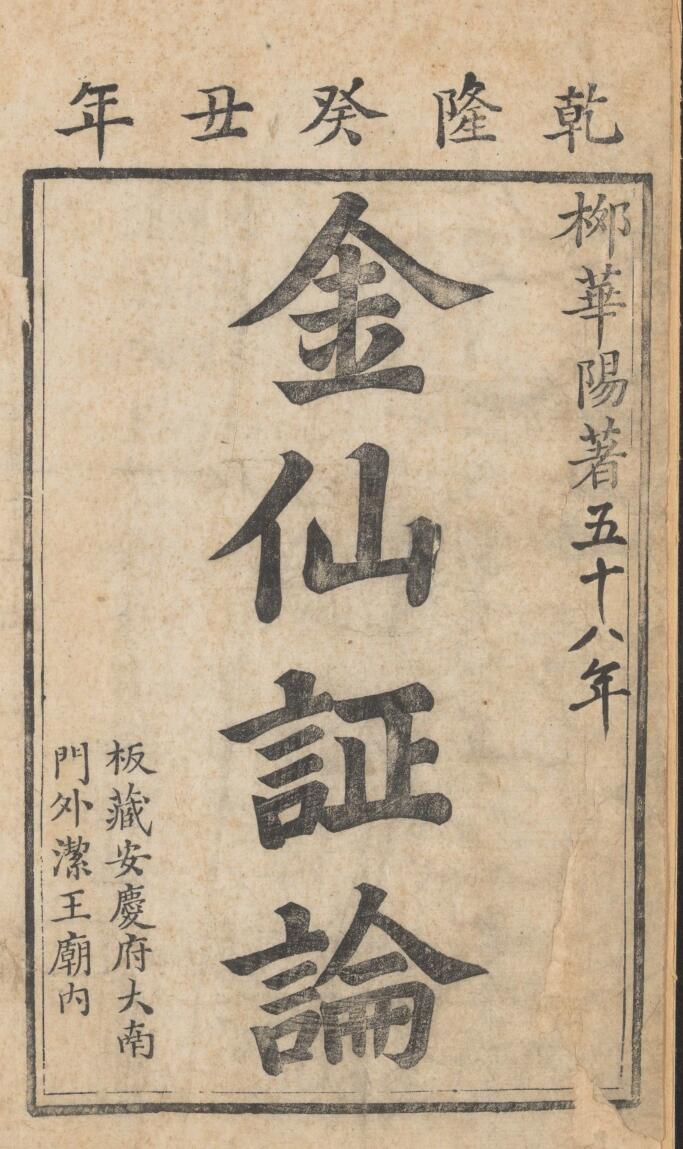 乾隆癸丑年
柳華陽著五十八年
金仙証論
板藏安慶府大南
門外潔王廟內